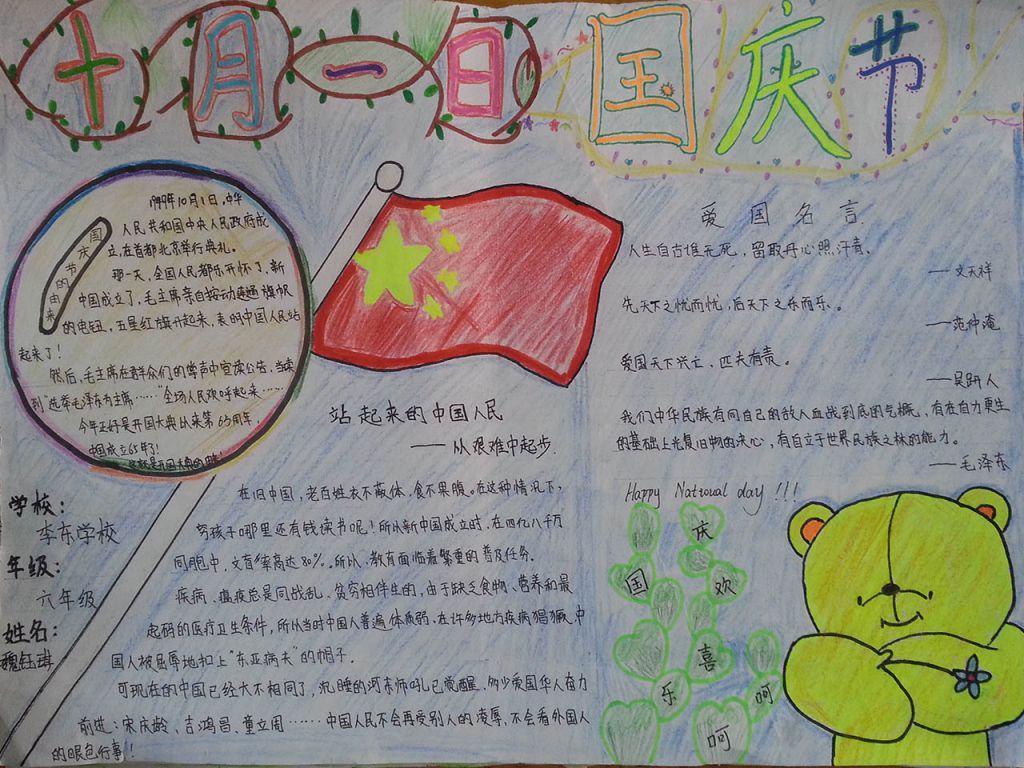 十月一日 国庆节
国庆节的由来
1949年10月1日,中华
人民共和国中央人民政府成
立,在首都北京举行典礼。
那一天,全国人民都乐开怀了,新
中国成立了,毛主席亲自按动连通旗帜
的电钮,五星红旗升起来,表明中国人民站
起来了!
然后,毛主席在群众们的掌声中宣读公告,当读
到"选举毛泽东为主席……"全场人民欢呼起来……
今年正好是开国大典以来第65周年,
中国成立65年了!
学校:
李东学校
年级:
六年级
姓名:
魏钰琪
站起来的中国人民
——从艰难中起步
在旧中国,老百姓衣不蔽体,食不果腹。在这种情况下,
穷孩子哪里还有钱读书呢!所以新中国成立时,在四亿八千万
同胞中,文盲率高达80%。所以,教育面临着繁重的普及任务。
疾病、瘟疫总是同战乱、贫穷相伴生的,由于缺乏食物、营养和最
起码的医疗卫生条件,所以当时中国人普遍体质弱,在许多地方疾病猖獗,中
国人被屈辱地扣上"东亚病夫"的帽子。
可现在的中国已经大不相同了,沉睡的河东师吼已觉醒,多少爱国华人奋力
前进:宋庆龄、吉鸿昌、童立周……中国人民不会再受别人的凌辱,不会看外国人
的眼色行事!
爱国名言
人生自古谁无死,留取丹心照汗青。
——文天祥
先天下之忧而忧,后天下之乐而乐。
——范仲淹
爱国天下兴亡,匹夫有责。
——吴趼人
我们中华民族有同自己的敌人血战到底的气概,有在自力更生
的基础上光复旧物的决心,有自立于世界民族之林的能力。
——毛泽东
Happy National day!!!
庆
国 欢
喜
乐 呵
呵